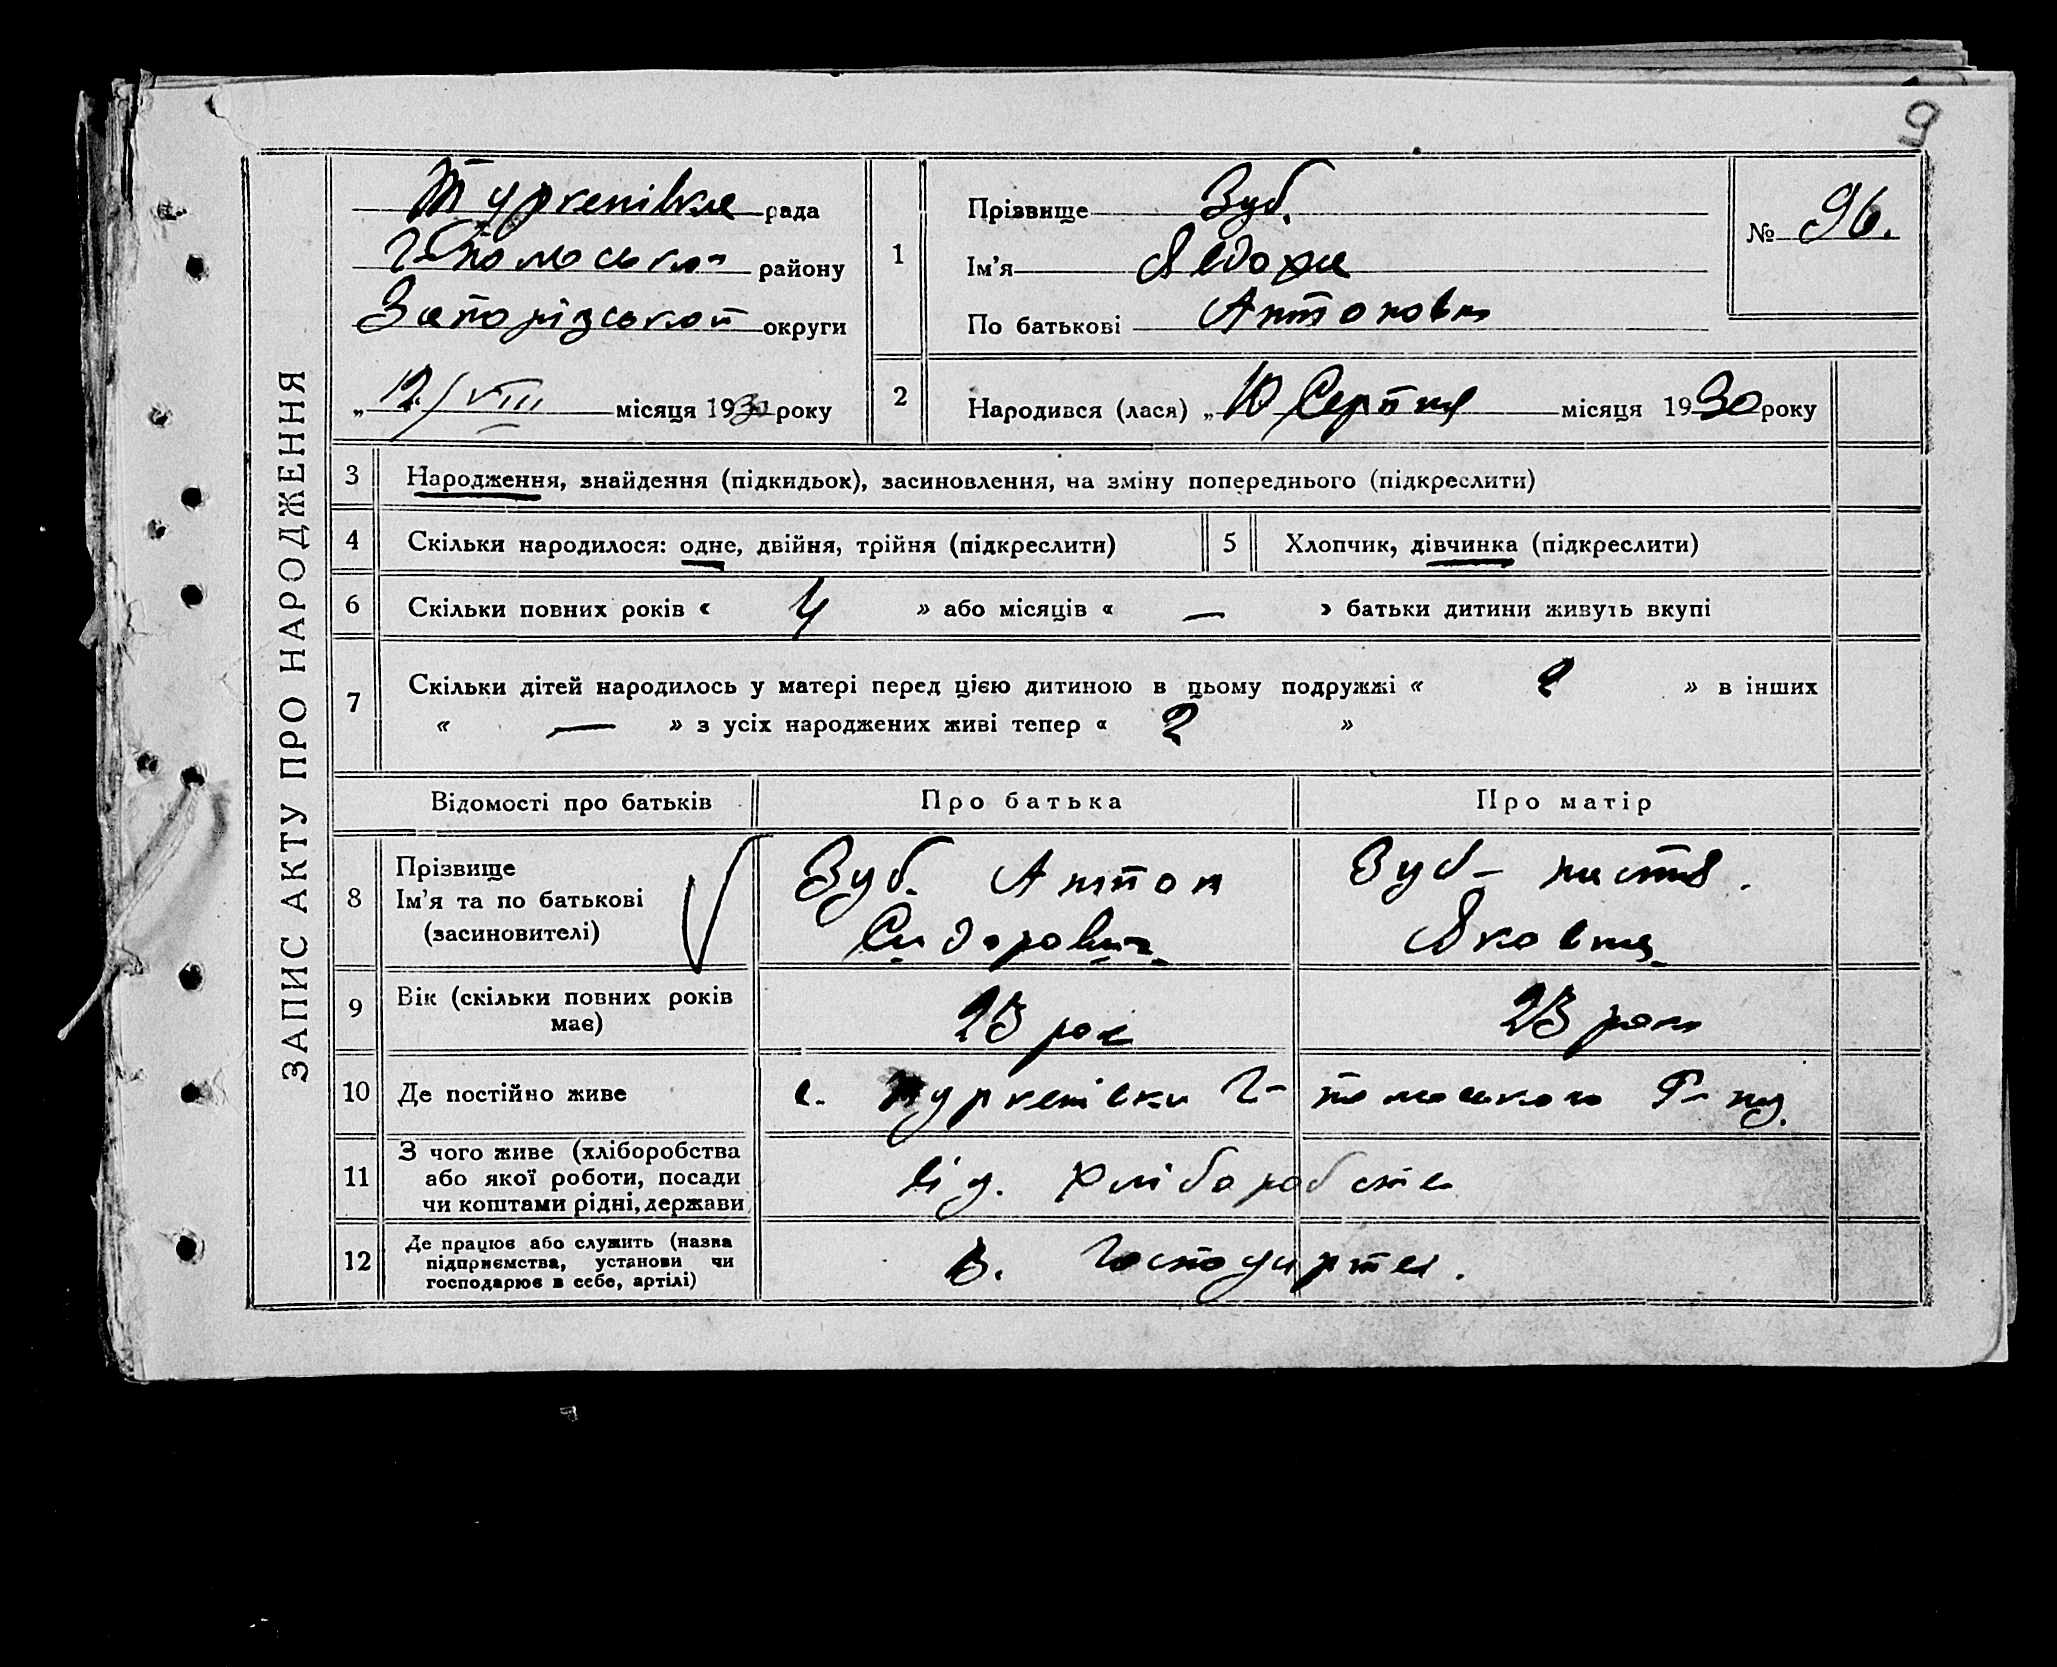 9
ЗАПИС АКТУ ПРО НАРОДЖЕННЯ
Туркенівка рада
району
Запорізської округи
„ 12/VIII місяця 1930 року
1
Прізвище Зуб.
Ім'я
По батькові Антоновна
№ 96.
2
Народився (лася) „ 10 Серпня місяця 1930 року
3 Народження, знайдення (підкидьок), засиновлення, на зміну попереднього (підкреслити)
4 Скільки народилося: одне, двійня, трійня (підкреслити) 5 Хлопчик, дівчинка (підкреслити)
6 Скільки повних років « 4 » або місяців « — » батьки дитини живуть вкупі
7 Скільки дітей народилось у матері перед цією дитиною в цьому подружжі « 2 » в інших
« — » з усіх народжених живі тепер « 2 »
Відомості про батьків Про батька Про матір
8 Прізвище
Ім'я та по батькові
(засиновителі)
Зуб. Антон
Сидорович
Зуб
Яковна
9 Вік (скільки повних років
має)
23 рок
23 роки
10 Де постійно живе с. Туркенівки Г- Р-ну.
11 З чого живе (хліборобства
або якої роботи, посади
чи коштами рідні, держави
від. хліборобства
12 Де працює або служить (назва
підприємства, установи чи
господарює в себе, артілі)
В.